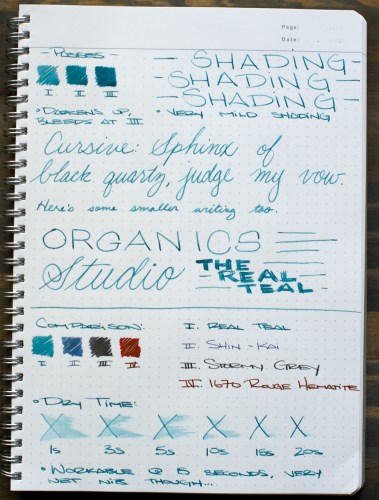 Page:
Date:
- Passes -
I II III
SHADING -
- SHADING -
- SHADING -
• Darkens up, bleeds at III
• Very mild shading
Cursive: Sphinx of
black quartz, judge my vow.
Here's some smaller writing too.
ORGANICS
Studio
THE REAL TEAL -
Comparison:
I II III IV
I. Real Teal
II. Shin-Kai
III. Stormy Grey
IV. 1670 Rouge Hematite
• Dry Time:
X X X X X X
1s 3s 5s 10s 15s 20s
• Workable @ 5 seconds, very
wet nib though...